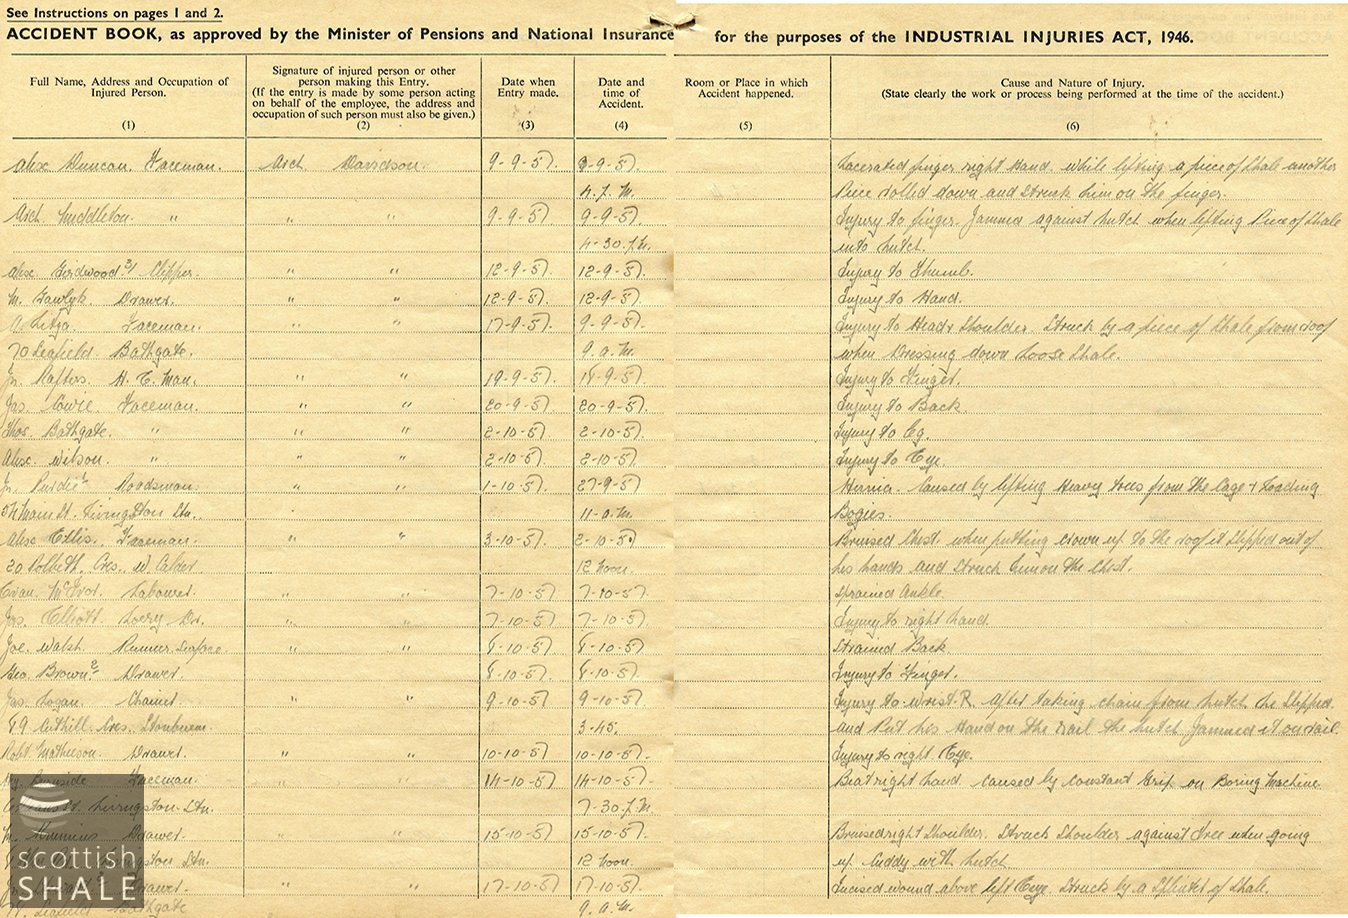 See Instructions on pages 1 and 2.
ACCIDENT BOOK, as approved by the Minister of Pensions and National Insurance for the purposes of the INDUSTRIAL INJURIES ACT, 1946.
Full Name, Address and Occupation of Injured Person. (1)
Signature of injured person or other person making this Entry. (If the entry is made by some person acting on behalf of the employee, the address and occupation of such person must also be given.) (2)
Date when Entry made. (3)
Date and time of Accident. (4)
Room or Place in which Accident happened. (5)
Cause and Nature of Injury. (State clearly the work or process being performed at the time of the accident.) (6)
Alex Duncan. Faceman. Arch Davidson 9-9-57. 9-9-57. Lacerated finger right Hand. while lifting a piece of Shale another
4.P.M. Piece rolled down and Struck him on the finger.
Arch. Middleton. " " " 9-9-57 9-9-57. Injury to finger. Jammed against hutch when lifting Piece of Shale
4-30.P.M. into hutch.
Alex. Girdwood Clipper. " " 12-9-57. 12-9-57. Injury to Thumb.
M. Drawer. " " 12-9-57. 12-9-57. Injury to Hand.
A. Faceman. " " 17-9-57. 9-9-57. Injury to Head & Shoulder. Struck by a piece of Shale from roof
70 Seafield Bathgate. 9.a.M. when Dressing down loose Shale.
Jn. Rafters. H.C. Man. " " 19-9-57. 18-9-57. Injury to Finger.
Jas. Cowie. Faceman. " " 20-9-57. 20-9-57. Injury to Back.
Thos. Bathgate. " " " 2-10-57. 2-10-57. Injury to Leg.
Alex. Wilson. " " " 2-10-57. 2-10-57. Injury to Eye.
Jn. Purdie Roadsman. " " 1-10-57. 27-9-57. Hernia. Caused by lifting Heavy trees from the Cage & Loading
Main St. Livingston Stn. 11-a.M. Bogies.
Alex Ellis. Faceman. " " 3-10-57. 2-10-57. Bruised Chest. when putting crown up to the roof it slipped out of
20 Polbeth. Cres. W. Calder. 12 Noon. his hands and Struck him on the Chest.
Evan. McIvor. Labourer. " " 7-10-57. 7-10-57. Sprained Ankle.
Jas. Elliott. Lorry Dr. " " 7-10-57. 7-10-57. Injury to right hand.
Joe. Walsh. Runner. Surface. " " 8-10-57. 8-10-57. Strained Back
Geo. Brown Drawer. 8-10-57. 8-10-57. Injury to Finger.
Jas. Logan. Chainer. " " 9-10-57. 9-10-57. Injury to Wrist. R. After taking chain from hutch he Slipped
Cuthill. Cres. Stoneyburn. 3-45. and Put his Hand on the rail the hutch Jammed it on rail.
Robt. Mathieson. Drawer. " " 10-10-57. 10-10-57. Injury to right. Eye.
Faceman. " " 14-10-57. 14-10-57. Beat right hand. Caused by Constant Grip on Boring Machine.
Livingston. Stn. 7-30.P.M.
Drawer. " " 15-10-57. 15-10-57. Bruised right Shoulder. Struck Shoulder against Tree when going
Stn. 12 Noon. up Cuddy with hutch
Drawer. " " 17-10-57. 17-10-57. Incised wound above left Eye. Struck by a Splinter of Shale.
Seafield Bathgate 9.a.M.
scottish
SHALE